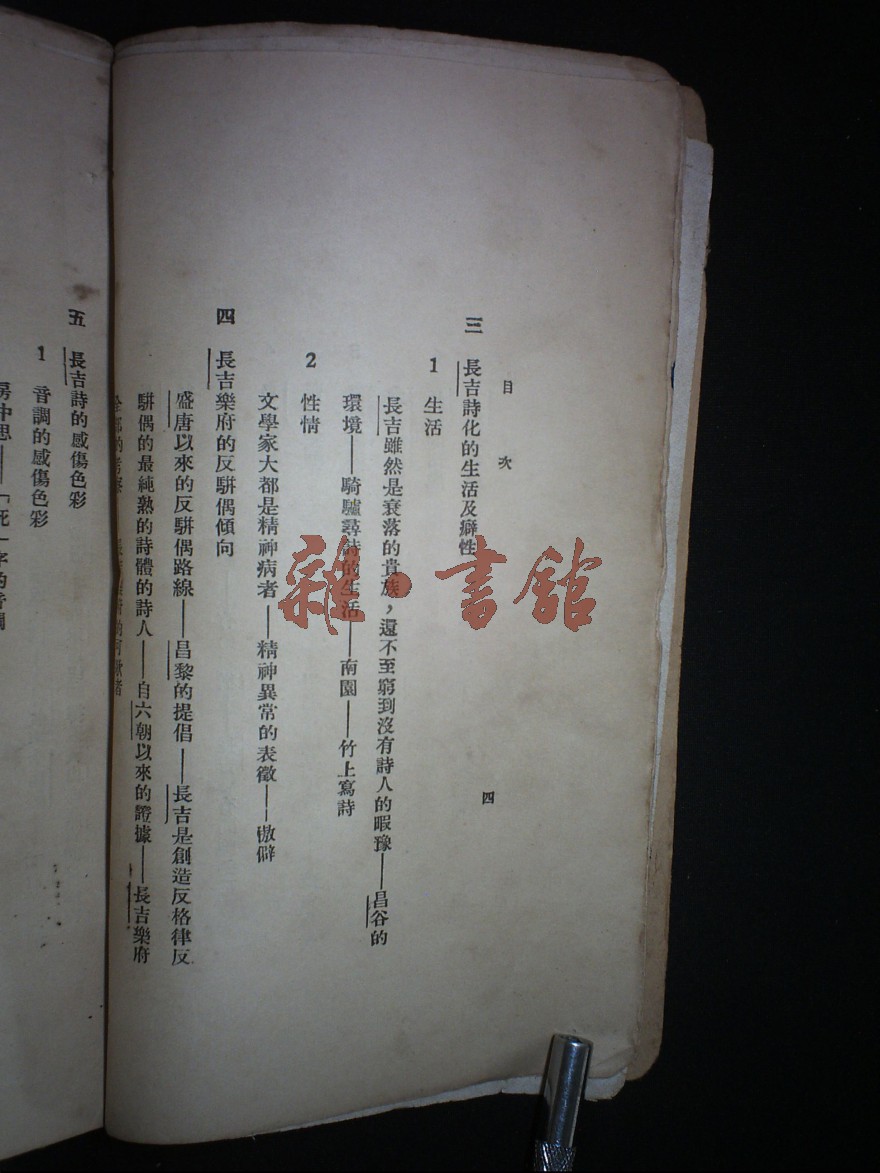 目次
四
三 長吉詩化的生活及癖性
1 生活
長吉雖然是衰落的貴族，還不至窮到沒有詩人的暇豫——昌谷的
環境——騎驢尋詩的生活——南園——竹上寫詩
2 性情
文學家大都是精神病者——精神異常的表徵——傲僻
四 長吉樂府的反駢偶傾向
盛唐以來的反駢偶路線——昌黎的提倡——長吉是創造反格律反
駢偶的最純熟的詩體的詩人——自六朝以來的證據——長吉樂府
全部的考察
五 長吉詩的感傷色彩
1 音調的感傷色彩
房中思——「死」字的音調
雜·書館